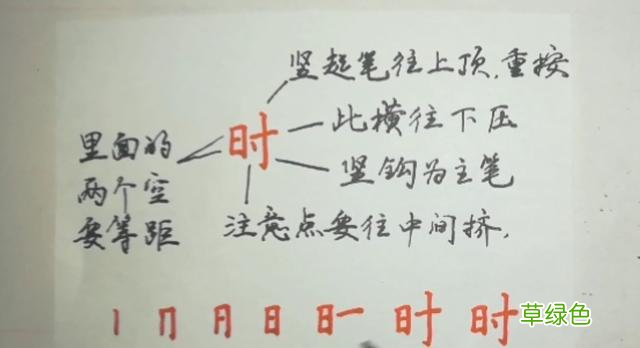 竖起笔往上顶.重按
此横往下压
竖钩为主笔
注意点要往中间挤.
里面的
两个空
要等距
时
丨 冂 月 日 日一 时 时
草绿色